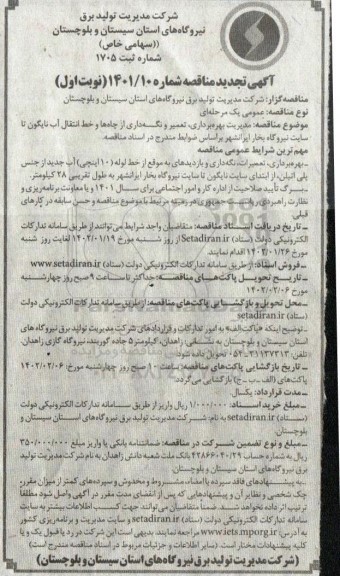 شرکت مدیریت تولید برق
نیروگاه‌های استان سیستان و بلوچستان
((سهامی خاص))
شماره ثبت ۱۷۰۵
آگهی تجدید مناقصه شماره ۱۴۰۱/۱۰ (نوبت اول)
مناقصه گزار: شرکت مدیریت تولید برق نیروگاه‌های استان سیستان و بلوچستان
نوع مناقصه: عمومی یک مرحله‌ای
موضوع مناقصه: مدیریت بهره‌برداری، تعمیر و نگه‌داری از چاه‌ها و خط انتقال آب نایگون تا
سایت نیروگاه بخار ایرانشهر براساس شرایط مندرج در اسناد مناقصه.
مهم‌ترین شرایط عمومی مناقصه
-بهره‌برداری، تعمیرات، نگه‌داری و بازدیدهای به موقع از خط لوله (۱۰اینچی) آب جدید از جنس
پلی اتیلن، از ابتدای سایت نایگون تا سایت نیروگاه بخار ایرانشهر به طول تقریبی ۲۸ کیلومتر.
-برگ تأیید صلاحیت از اداره کار و امور اجتماعی برای سال ۱۴۰۱ و یا معاونت برنامه‌ریزی و
نظارت راهبردی در زمینه مرتبط با موضوع مناقصه و حسن سابقه در کارهای
قبلی
-تاریخ دریافت اسناد مناقصه: متقاضیان واجد شرایط می‌توانند از طریق سامانه تدارکات
الکترونیکی دولت (ستاد) Setadiran.ir از روز شنبه مورخ ۱۴۰۲/۰۱/۱۹ لغایت روز شنبه
مورخ ۱۴۰۲/۰۱/۲۶ اقدام نمایند.
-فروش اسناد: از طریق سامانه تدارکات الکترونیکی دولت (ستاد) www.setadiran.ir
-تاریخ تحویل پاکت‌های مناقصه: حداکثر تا ساعت ۹ صبح روز چهارشنبه
مورخ ۱۴۰۲/۰۲/۰۶
-محل تحویل و بازگشایی پاکت‌های مناقصه: از طریق سامانه تدارکات الکترونیکی دولت
(ستاد) setadiran.ir
-توضیح اینکه «پاکت الف» به امور تدارکات و قراردادهای شرکت مدیریت تولید برق نیروگاه های
استان سیستان و بلوچستان به نشانی: زاهدان، کیلومتر ۵ جاده گوربند، نیروگاه گازی زاهدان.
تلفن: ۳۱۱۳۷۳۱۳-۰۵۴ تحویل داده شود.
-تاریخ بازگشایی پاکت‌های مناقصه: ساعت ۱۰ صبح روز چهارشنبه مورخ ۱۴۰۲/۰۲/۰۶
پاکت‌های (الف-ب-ج) بازگشایی می‌گردد.
-مدت قرارداد: یکسال
-مبلغ خرید اسناد: ۱/۰۰۰/۰۰۰ ریال واریز از طریق سامانه تدارکات الکترونیکی دولت
(ستاد) setadiran.ir به نام: شرکت مدیریت تولید برق نیروگاه‌های استان سیستان و
بلوچستان
-مبلغ و نوع تضمین شرکت در مناقصه: ضمانتنامه بانکی یا واریز مبلغ ۳۵۰/۰۰۰/۰۰۰
ریال به شماره حساب بانک ملت شعبه دانش زاهدان به نام شرکت مدیریت تولید
برق نیروگاه‌های استان سیستان و بلوچستان
-به پیشنهادهای فاقد سپرده یا امضاء، مشروط و مخدوش و سپرده‌های کمتر از میزان مقرر،
چک شخصی و نظایر آن و پیشنهادهایی که پس از انقضای مدت مقرر در آگهی واصل شود مطلقاً
ترتیب اثر داده نخواهد شد. ضمناً متقاضیان می‌توانند جهت کسب اطلاعات بیشتر به سایت
سامانه تدارکات الکترونیکی دولت (ستاد) setadiran.ir و سایت مدیریت و برنامه‌ریزی کشور
به آدرس www.iets.mporg.ir مراجعه نمایند. بدیهی است این شرکت در رد یا قبول یک و یا
کلیه پیشنهادات مختار است. (سایر اطلاعات و جزئیات مربوط در اسناد مناقصه مندرج است)
(شرکت مدیریت تولید برق نیروگاه‌های استان سیستان و بلوچستان)